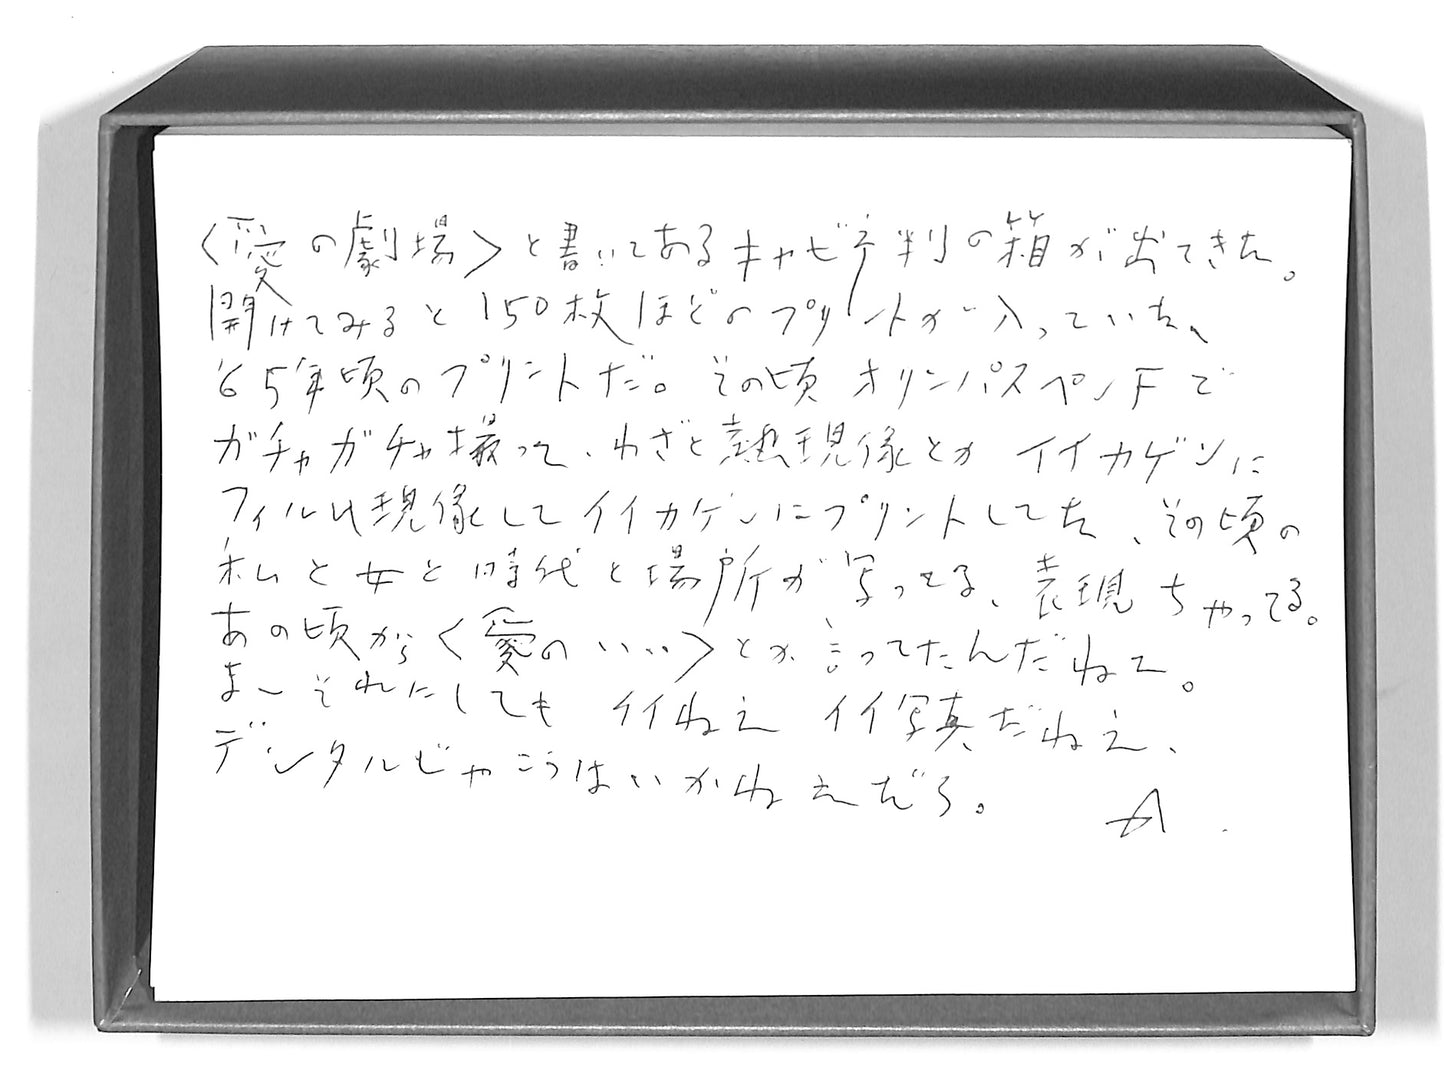 〈愛の劇場〉と書いてあるキャビネ判の箱が出てきた。
開けてみると150枚ほどのプリントが入っていた、
'65年頃のプリントだ。その頃オリンパスペンFで
ガチャガチャ撮って、わざと熱現像とかイイカゲンに
フィルム現像してイイカゲンにプリントしてた、その頃の
私と女と時代と場所が写ってる、表現ちゃってる。
あの頃から〈愛の…〉とか言ってたんだねェ。
ま〜それにしても イイねェ イイ写真だねェ、
デジタルじゃこうはいかねェだろ。
A.